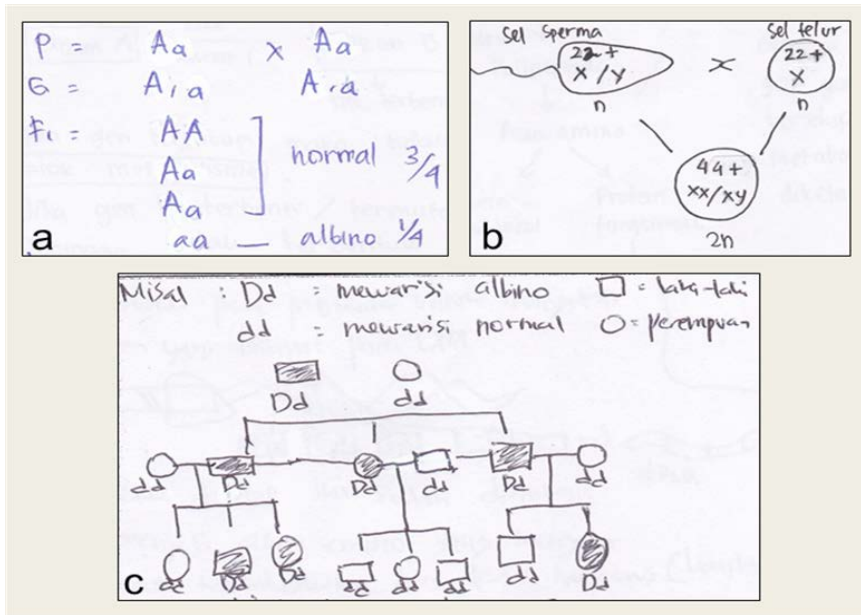 P = Aa x Aa
G = A, a A, a
F1 = AA
Aa
Aa
normal 3/4
aa — albino 1/4
a
sel sperma sel telur
22+ x/y × 22+ x
n n
44+
xx/xy
2n
b
Misal : Dd = mewarisi albino □ = laki-laki
dd = mewarisi normal ○ = perempuan
Dd dd
dd Dd Dd dd Dd dd
dd Dd Dd dd dd dd dd Dd
c